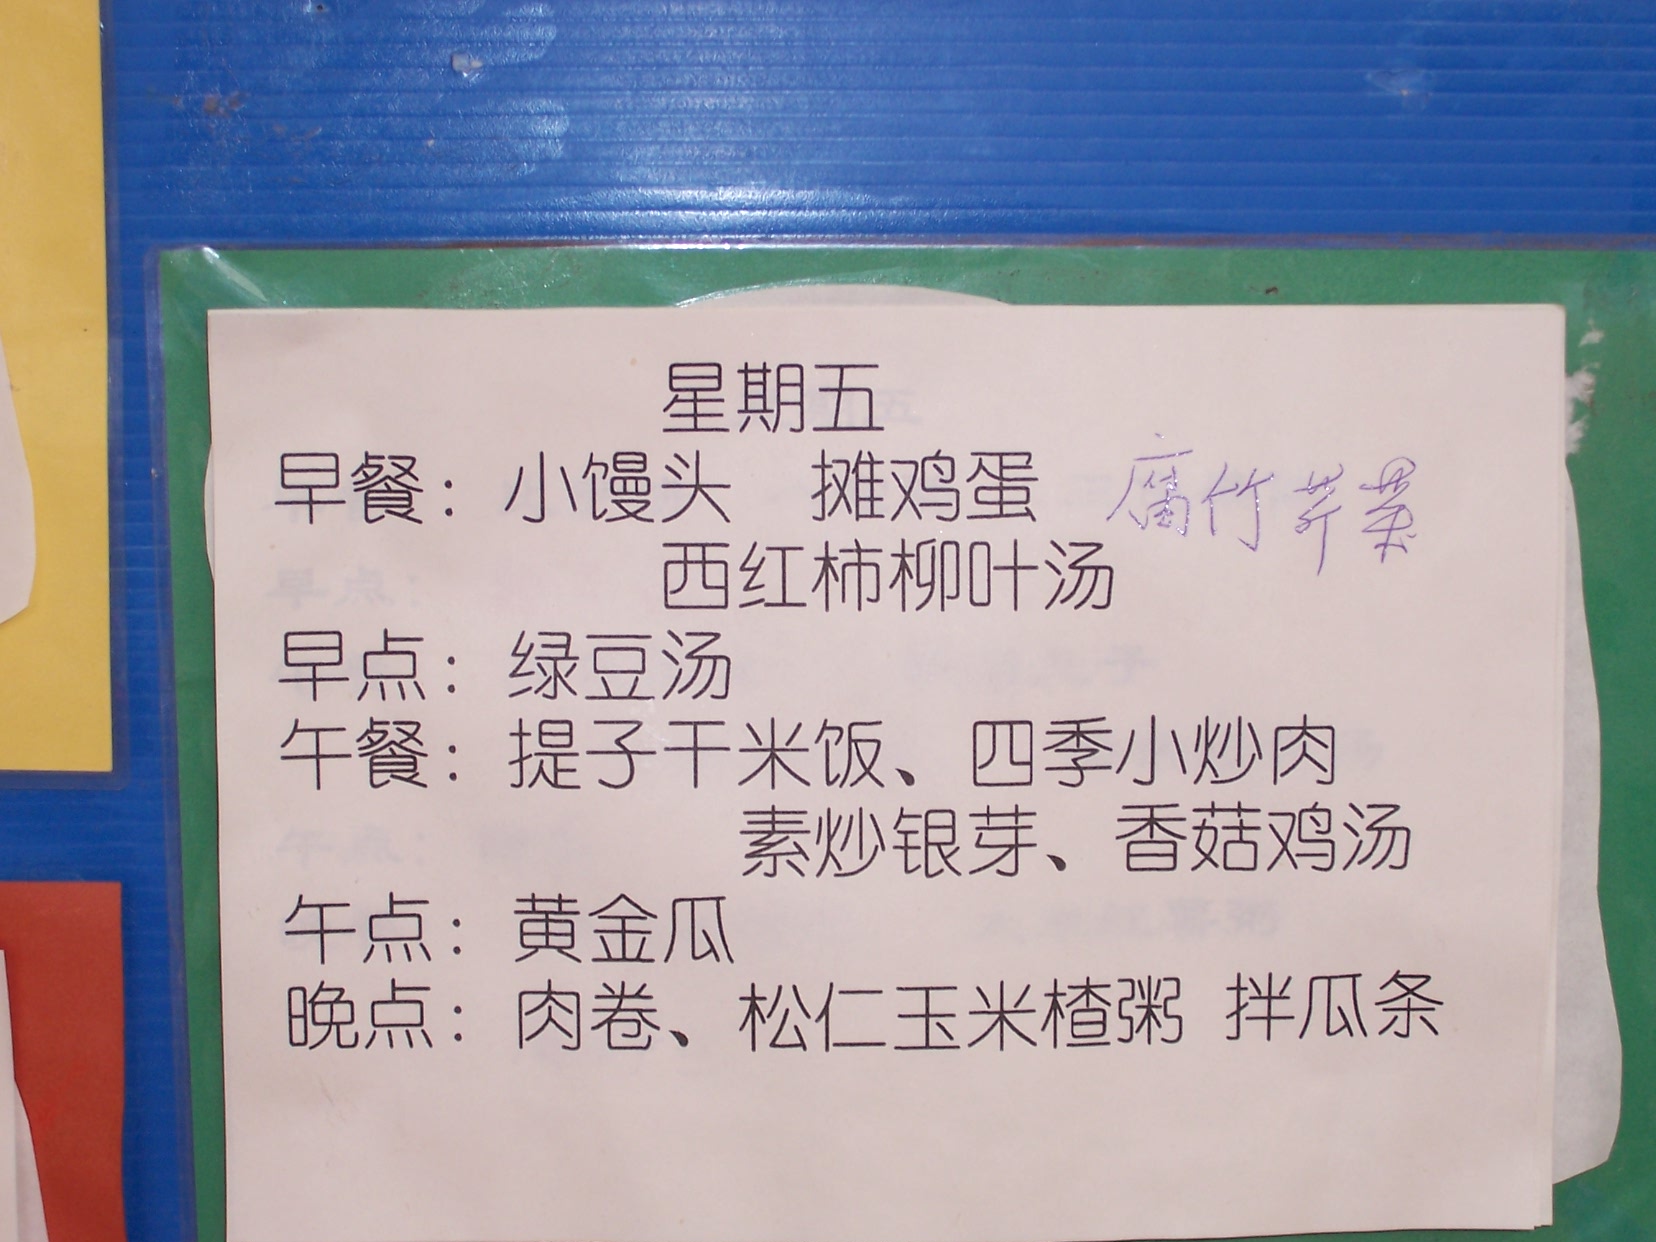 星期五
早餐：小馒头 摊鸡蛋 腐竹芹菜
西红柿柳叶汤
早点：绿豆汤
午餐：提子干米饭、四季小炒肉
素炒银芽、香菇鸡汤
午点：黄金瓜
晚点：肉卷、松仁玉米楂粥 拌瓜条